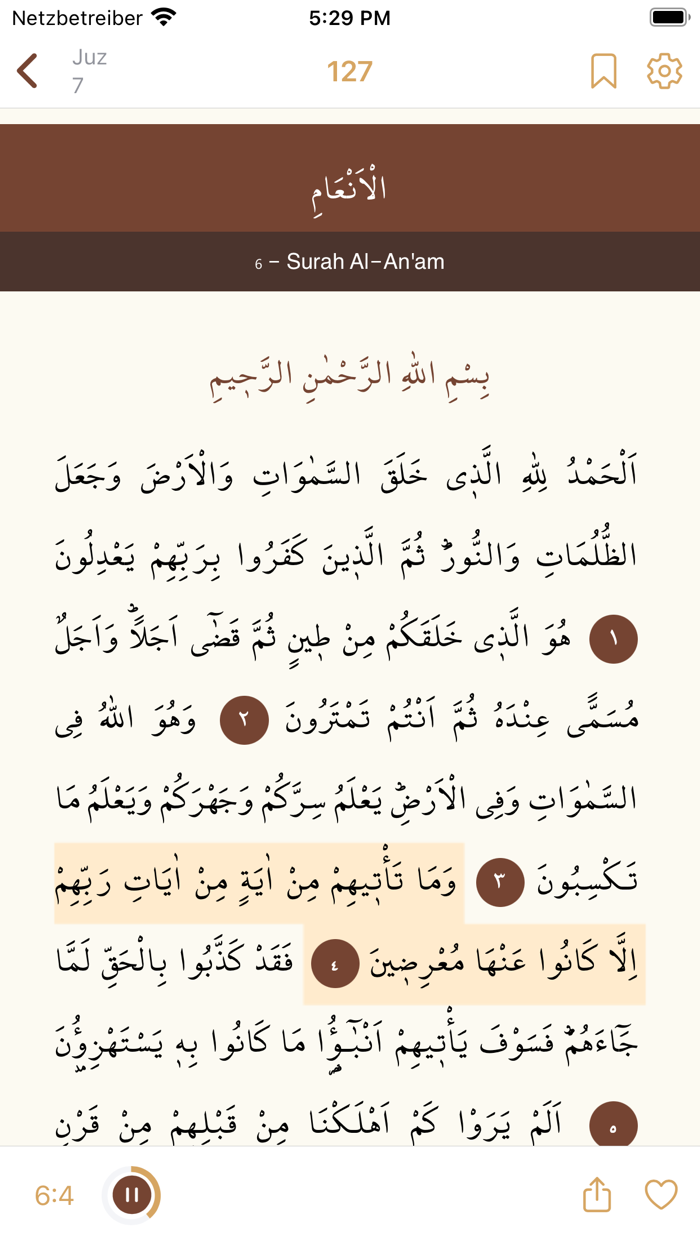 Netzbetreiber 5:29 PM
Juz
7
127
الْاَنْعَامِ
6 - Surah Al-An'am
بِسْمِ اللّٰهِ الرَّحْمٰنِ الرَّح۪يمِ
اَلْحَمْدُ لِلّٰهِ الَّذ۪ى خَلَقَ السَّمٰوَاتِ وَالْاَرْضَ وَجَعَلَ
الظُّلُمَاتِ وَالنُّورَۜ ثُمَّ الَّذ۪ينَ كَفَرُوا بِرَبِّهِمْ يَعْدِلُونَ
١ هُوَ الَّذ۪ى خَلَقَكُمْ مِنْ ط۪ينٍ ثُمَّ قَضٰٓى اَجَلاًۜ وَاَجَلٌ
مُسَمًّى عِنْدَهُ ثُمَّ اَنْتُمْ تَمْتَرُونَ ٢ وَهُوَ اللّٰهُ فِى
السَّمٰوَاتِ وَفِى الْاَرْضِۜ يَعْلَمُ سِرَّكُمْ وَجَهْرَكُمْ وَيَعْلَمُ مَا
تَكْسِبُونَ ٣ وَمَا تَأْت۪يهِمْ مِنْ اٰيَةٍ مِنْ اٰيَاتِ رَبِّهِمْ
اِلَّا كَانُوا عَنْهَا مُعْرِض۪ينَ ٤ فَقَدْ كَذَّبُوا بِالْحَقِّ لَمَّا
جَٓاءَهُمْۜ فَسَوْفَ يَأْت۪يهِمْ اَنْبٰٓـؤُ۬ا مَا كَانُوا بِه۪ يَسْتَهْزِؤُ۫نَ
٥ اَلَمْ يَرَوْا كَمْ اَهْلَكْنَا مِنْ قَبْلِهِمْ مِنْ قَرْنٍ
6:4